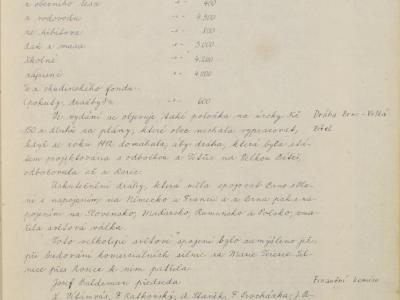 z obecního lesa -"- 400
z vodovodu -"- 4.500
ze hřbitova -"- 800
dak z masa -"- 3.000
školné -"- 4.200
zápisné -"- 4.000
Z chudinského fondu
(pokuty, dražby) -"- 600
Ve vydání se objevuje také položka na úroky Kč
150 z dluhu za plány, které obec nechala vypracovat,
když se roku 1912 domáhala, aby dráha, která byla stá-
tem projektována s odbočkou z na Velkou Bíteš,
odbočovala až z Kosice.
Dráha Brno - Velká
Bíteš
Uskutečnění dráhy, která měla spojovat Brno
s napojením na Německo a Francii a z Brna pak s na-
pojením na Slovensko, Maďarsko, Rumunsko a Polsko,
světová válka.
Toto velkolepé světové spojení bylo zamýšleno již
při budování komerciálních silnic za Marie Terezie. Sil-
nice přes Kosice k nim patřila.
Josef předseda
Finanční komise
F. Ratkovský, A. Staněk, F. Procházka, J.